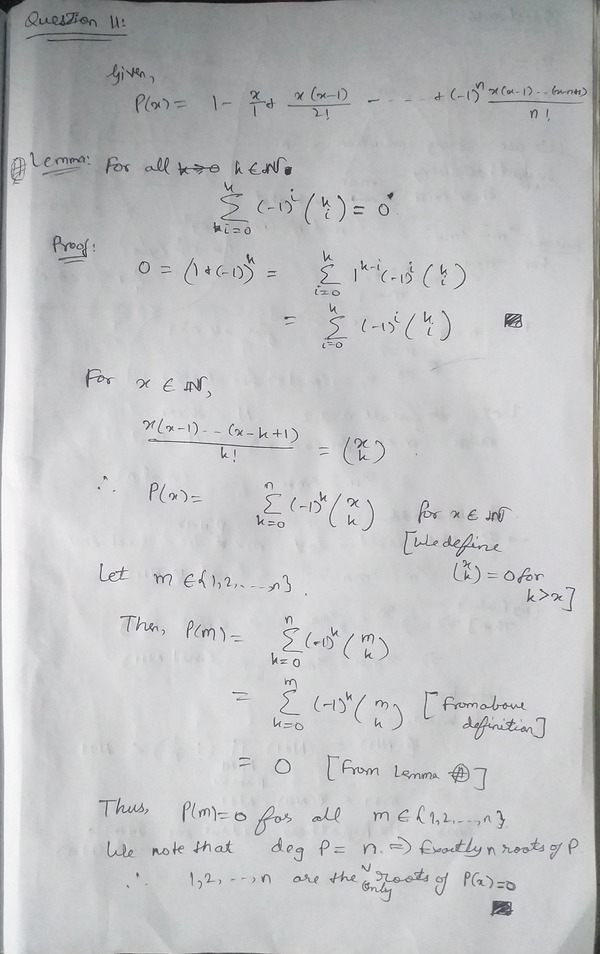 Question 11:
Given,
P(x) = 1 - x/1 + x(x-1)/2! - ---- + (-1)^n x(x-1)...(x-n+1)/n!
# Lemma: For all k∈ℕ.
∑_{i=0}^{k} (-1)^i (k i) = 0
Proof:
0 = (1+(-1))^k = ∑_{i=0}^{k} 1^{k-i} (-1)^i (k i)
= ∑_{i=0}^{k} (-1)^i (k i)
For x ∈ ℕ,
x(x-1)...(x-k+1)/k! = (x k).
∴ P(x) = ∑_{k=0}^{n} (-1)^k (x k) for x ∈ ℕ
[We define
(x k) = 0 for
k > x]
Let m ∈ {1,2,...,n}.
Then, P(m) = ∑_{k=0}^{n} (-1)^k (m k)
= ∑_{k=0}^{m} (-1)^k (m k) [From above
definition]
= 0 [From Lemma #]
Thus, P(m) = 0 for all m ∈ {1,2,...,n}
We note that deg P = n. ⇒ Exactly n roots of P
∴ 1,2,...,n are the only roots of P(x)=0